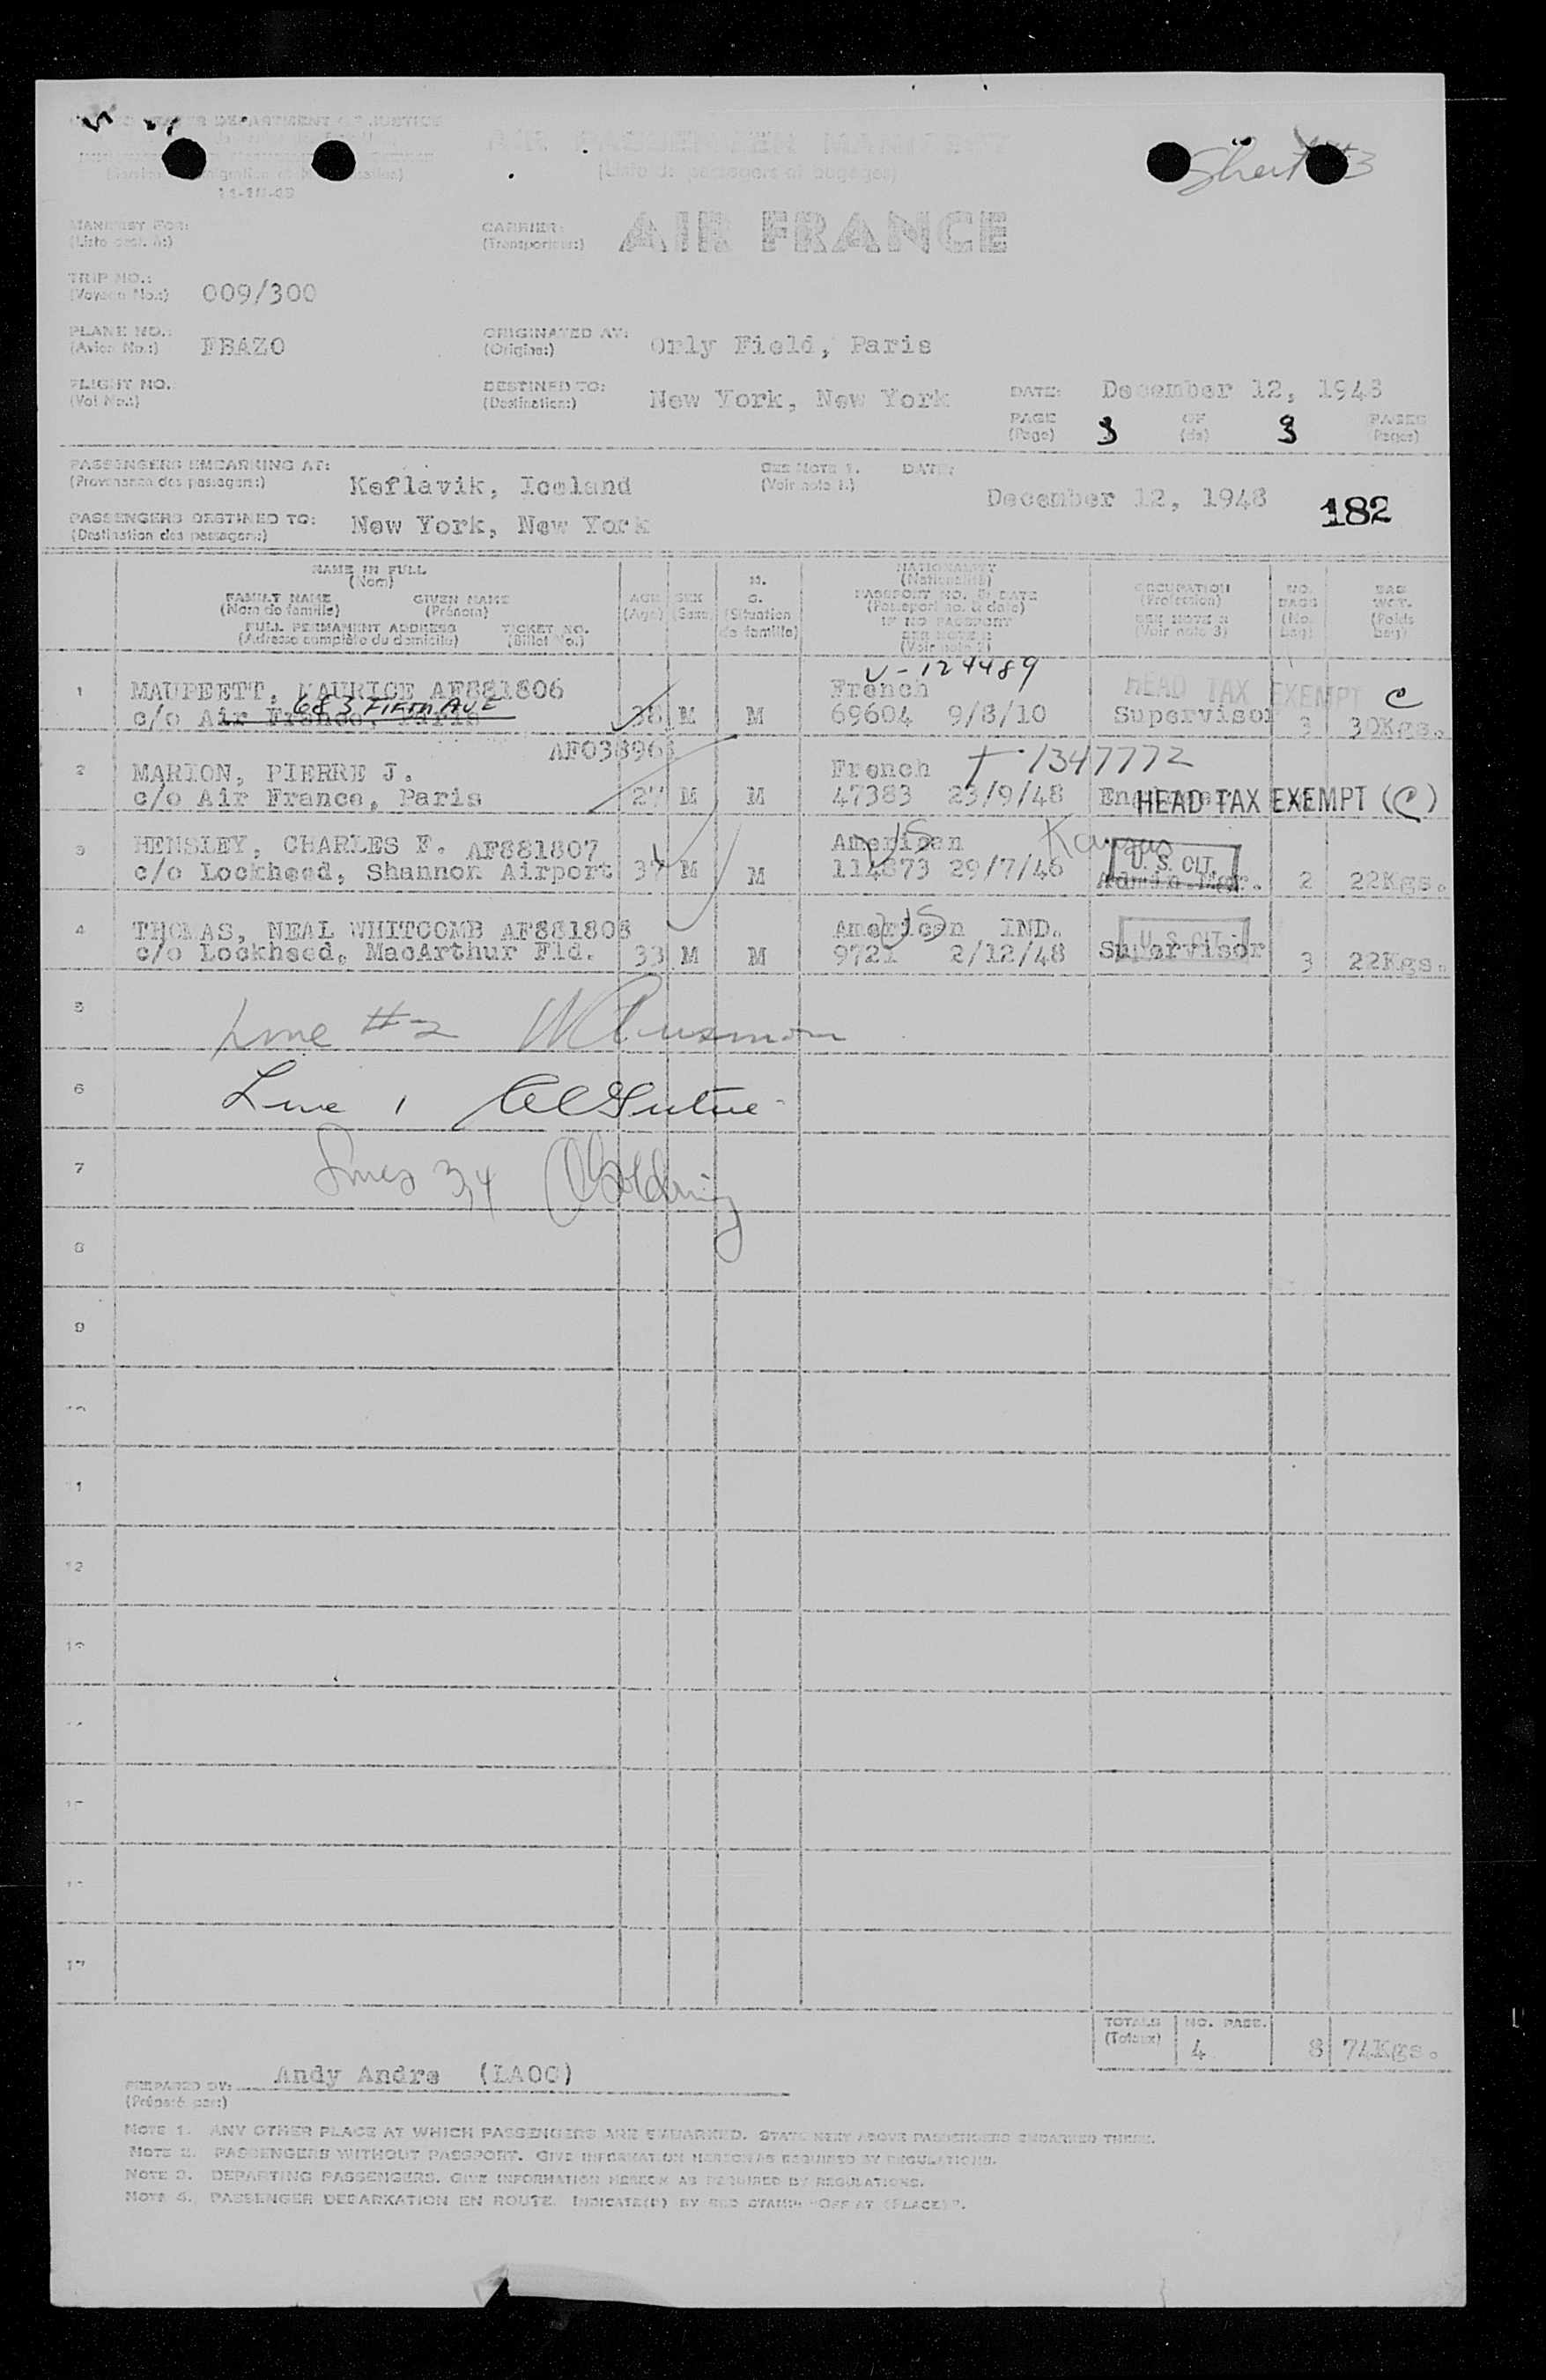 AIR PASSENGER MANIFEST
(Liste de passagers et bagages)
Sheet #3
MANIFEST FOR:
CARRIER:
(Transporteur:)
AIR FRANCE
TRIP NO.:
(Voyage No.:)
009/300
PLANE NO.:
(Avion No.:)
FBAZO
ORIGINATED AT:
(Origine:)
Orly Field, Paris
FLIGHT NO.
(Vol No.:)
DESTINED TO:
(Destination:)
New York, New York
DATE: December 12, 1948
PAGE 3 OF 3 PAGES
(Page) (de) (Pages)
PASSENGERS EMBARKING AT:
(Provenance des passagers:)
Keflavik, Iceland
SEE NOTE 1.
(Voir note 1.)
DATE:
December 12, 1948
182
PASSENGERS DESTINED TO:
(Destination des passagers:)
New York, New York
NAME IN FULL
(Nom)
FAMILY NAME GIVEN NAME
(Nom de famille) (Prénom)
FULL PERMANENT ADDRESS TICKET NO.
(Adresse complète du domicile) (Billet No.)
AGE
(Age)
SEX
(Sexe)
M.
S.
(Situation
de famille)
NATIONALITY
(Nationalité)
PASSPORT NO. & DATE
(Passeport no. & date)
IF NO PASSPORT
SEE NOTE 2
(Voir note 2)
OCCUPATION
(Profession)
SEE NOTE 3
(Voir note 3)
NO.
BAGS
(No.
bag)
BAG
WGT.
(Poids
bag)
V-124489
1 MAUPEETT, MAURICE AF881806 French HEAD TAX EXEMPT C
683 FIFTH AVE
c/o Air France, Paris 38 M M 69604 9/8/10 Supervisor 3 30Kgs.
AF038963
2 MARION, PIERRE J. French T-1347772
c/o Air France, Paris 27 M M 47383 23/9/48 HEAD TAX EXEMPT (C)
3 HENSLEY, CHARLES F. AF881807 American US Kansas U. S. CIT.
c/o Lockheed, Shannon Airport 34 M M 114873 29/7/46 Admin.Mgr. 2 22Kgs.
4 THOMAS, NEAL WHITCOMB AF881808 American US IND. U. S. CIT.
c/o Lockheed, MacArthur Fld. 33 M M 9721 2/12/48 Supervisor 3 22Kgs.
5 Line #2
6 Line 1
7 Lines 3,4
8
9
11
12
17
TOTALS NO. PASS.
(Totaux) 4 8 74Kgs.
PREPARED BY: Andy Andre (LAOC)
(Préparé par:)
NOTE 1. ANY OTHER PLACE AT WHICH PASSENGERS ARE EMBARKED. STATE NEXT ABOVE PASSENGERS EMBARKED THERE.
NOTE 2. PASSENGERS WITHOUT PASSPORT. GIVE INFORMATION HEREON AS REQUIRED BY REGULATIONS.
NOTE 3. DEPARTING PASSENGERS. GIVE INFORMATION HEREON AS REQUIRED BY REGULATIONS.
NOTE 4. PASSENGER DEBARKATION EN ROUTE. INDICATE(D) BY RED STAMP "OFF AT (PLACE)".